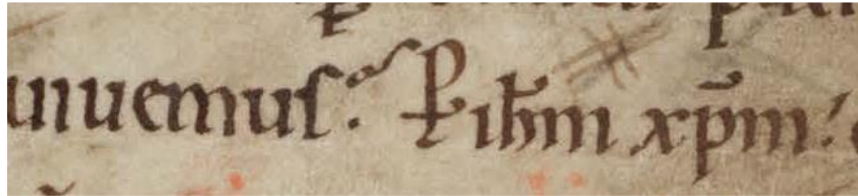 uiuemus. ꝑ ihm̅ xp̅m.